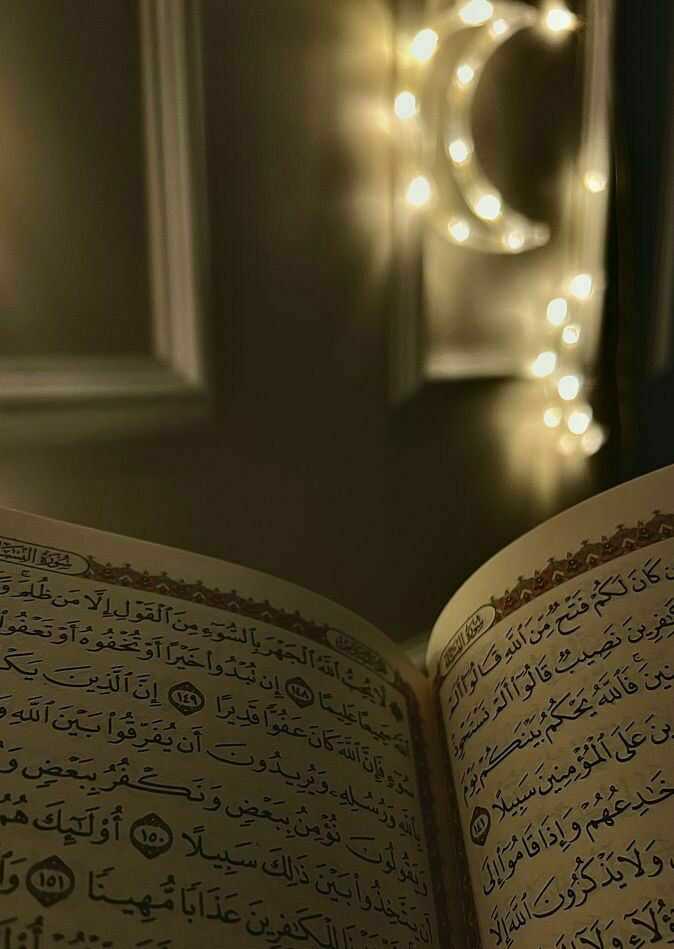 سُورَةُ النِّسَاءِ
كَانَ لَكُمْ فَتْحٌ مِّنَ ٱللَّهِ قَالُوٓا۟ أَلَمْ
نَصِيبٌ قَالُوٓا۟ أَلَمْ نَسْتَحْوِذْ
فَٱللَّهُ يَحْكُمُ بَيْنَكُمْ يَوْمَ
عَلَى ٱلْمُؤْمِنِينَ سَبِيلًا ١٤١
خَـٰدِعُهُمْ وَإِذَا قَامُوٓا۟ إِلَى
وَلَا يَذْكُرُونَ ٱللَّهَ إِلَّا
وَلَآ
سُورَةُ النِّسَاءِ
لَّا يُحِبُّ ٱللَّهُ ٱلْجَهْرَ بِٱلسُّوٓءِ مِنَ ٱلْقَوْلِ إِلَّا مَن ظُلِمَ
ٱللَّهُ سَمِيعًا عَلِيمًا ١٤٨ إِن تُبْدُوا۟ خَيْرًا أَوْ تُخْفُوهُ أَوْ تَعْفُوا۟
سُوٓءٍ فَإِنَّ ٱللَّهَ كَانَ عَفُوًّا قَدِيرًا ١٤٩ إِنَّ ٱلَّذِينَ
بِٱللَّهِ وَرُسُلِهِۦ وَيُرِيدُونَ أَن يُفَرِّقُوا۟ بَيْنَ ٱللَّهِ
وَيَقُولُونَ نُؤْمِنُ بِبَعْضٍ وَنَكْفُرُ بِبَعْضٍ
أَن يَتَّخِذُوا۟ بَيْنَ ذَٰلِكَ سَبِيلًا ١٥٠ أُو۟لَـٰٓئِكَ هُمُ
لِلْكَـٰفِرِينَ عَذَابًا مُّهِينًا ١٥١